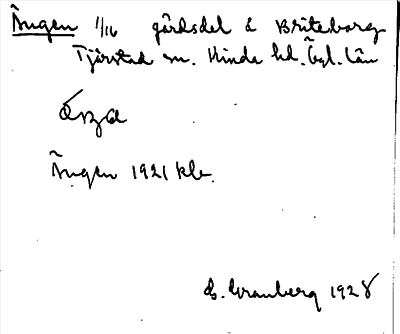 Ängen 1/16 gårdsdel i Briteborg
Tjärstad sn. Kinda hd. Ögl. län
Ängen 1921 kle
G. Granberg 1928